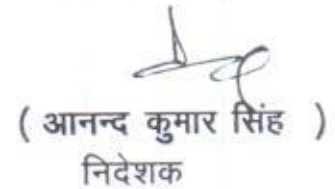 ( आनन्द कुमार सिंह )
निदेशक